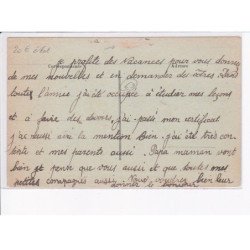 Correspondance Adresse
je profite des vacances pour vous donner
de mes nouvelles et en demander des vôtres. Dans
toute l'année j'ai été occupée à étudier mes leçons
et à faire des devoirs, j'ai passé mon certificat
j'ai réussi avec la mention bien. j'ai été très con
tente et mes parents aussi. Papa maman vont
bien je pense que vous aussi et que toutes mes
petites compagnes aussi. Vous voudrez bien leur
donner le bonjour